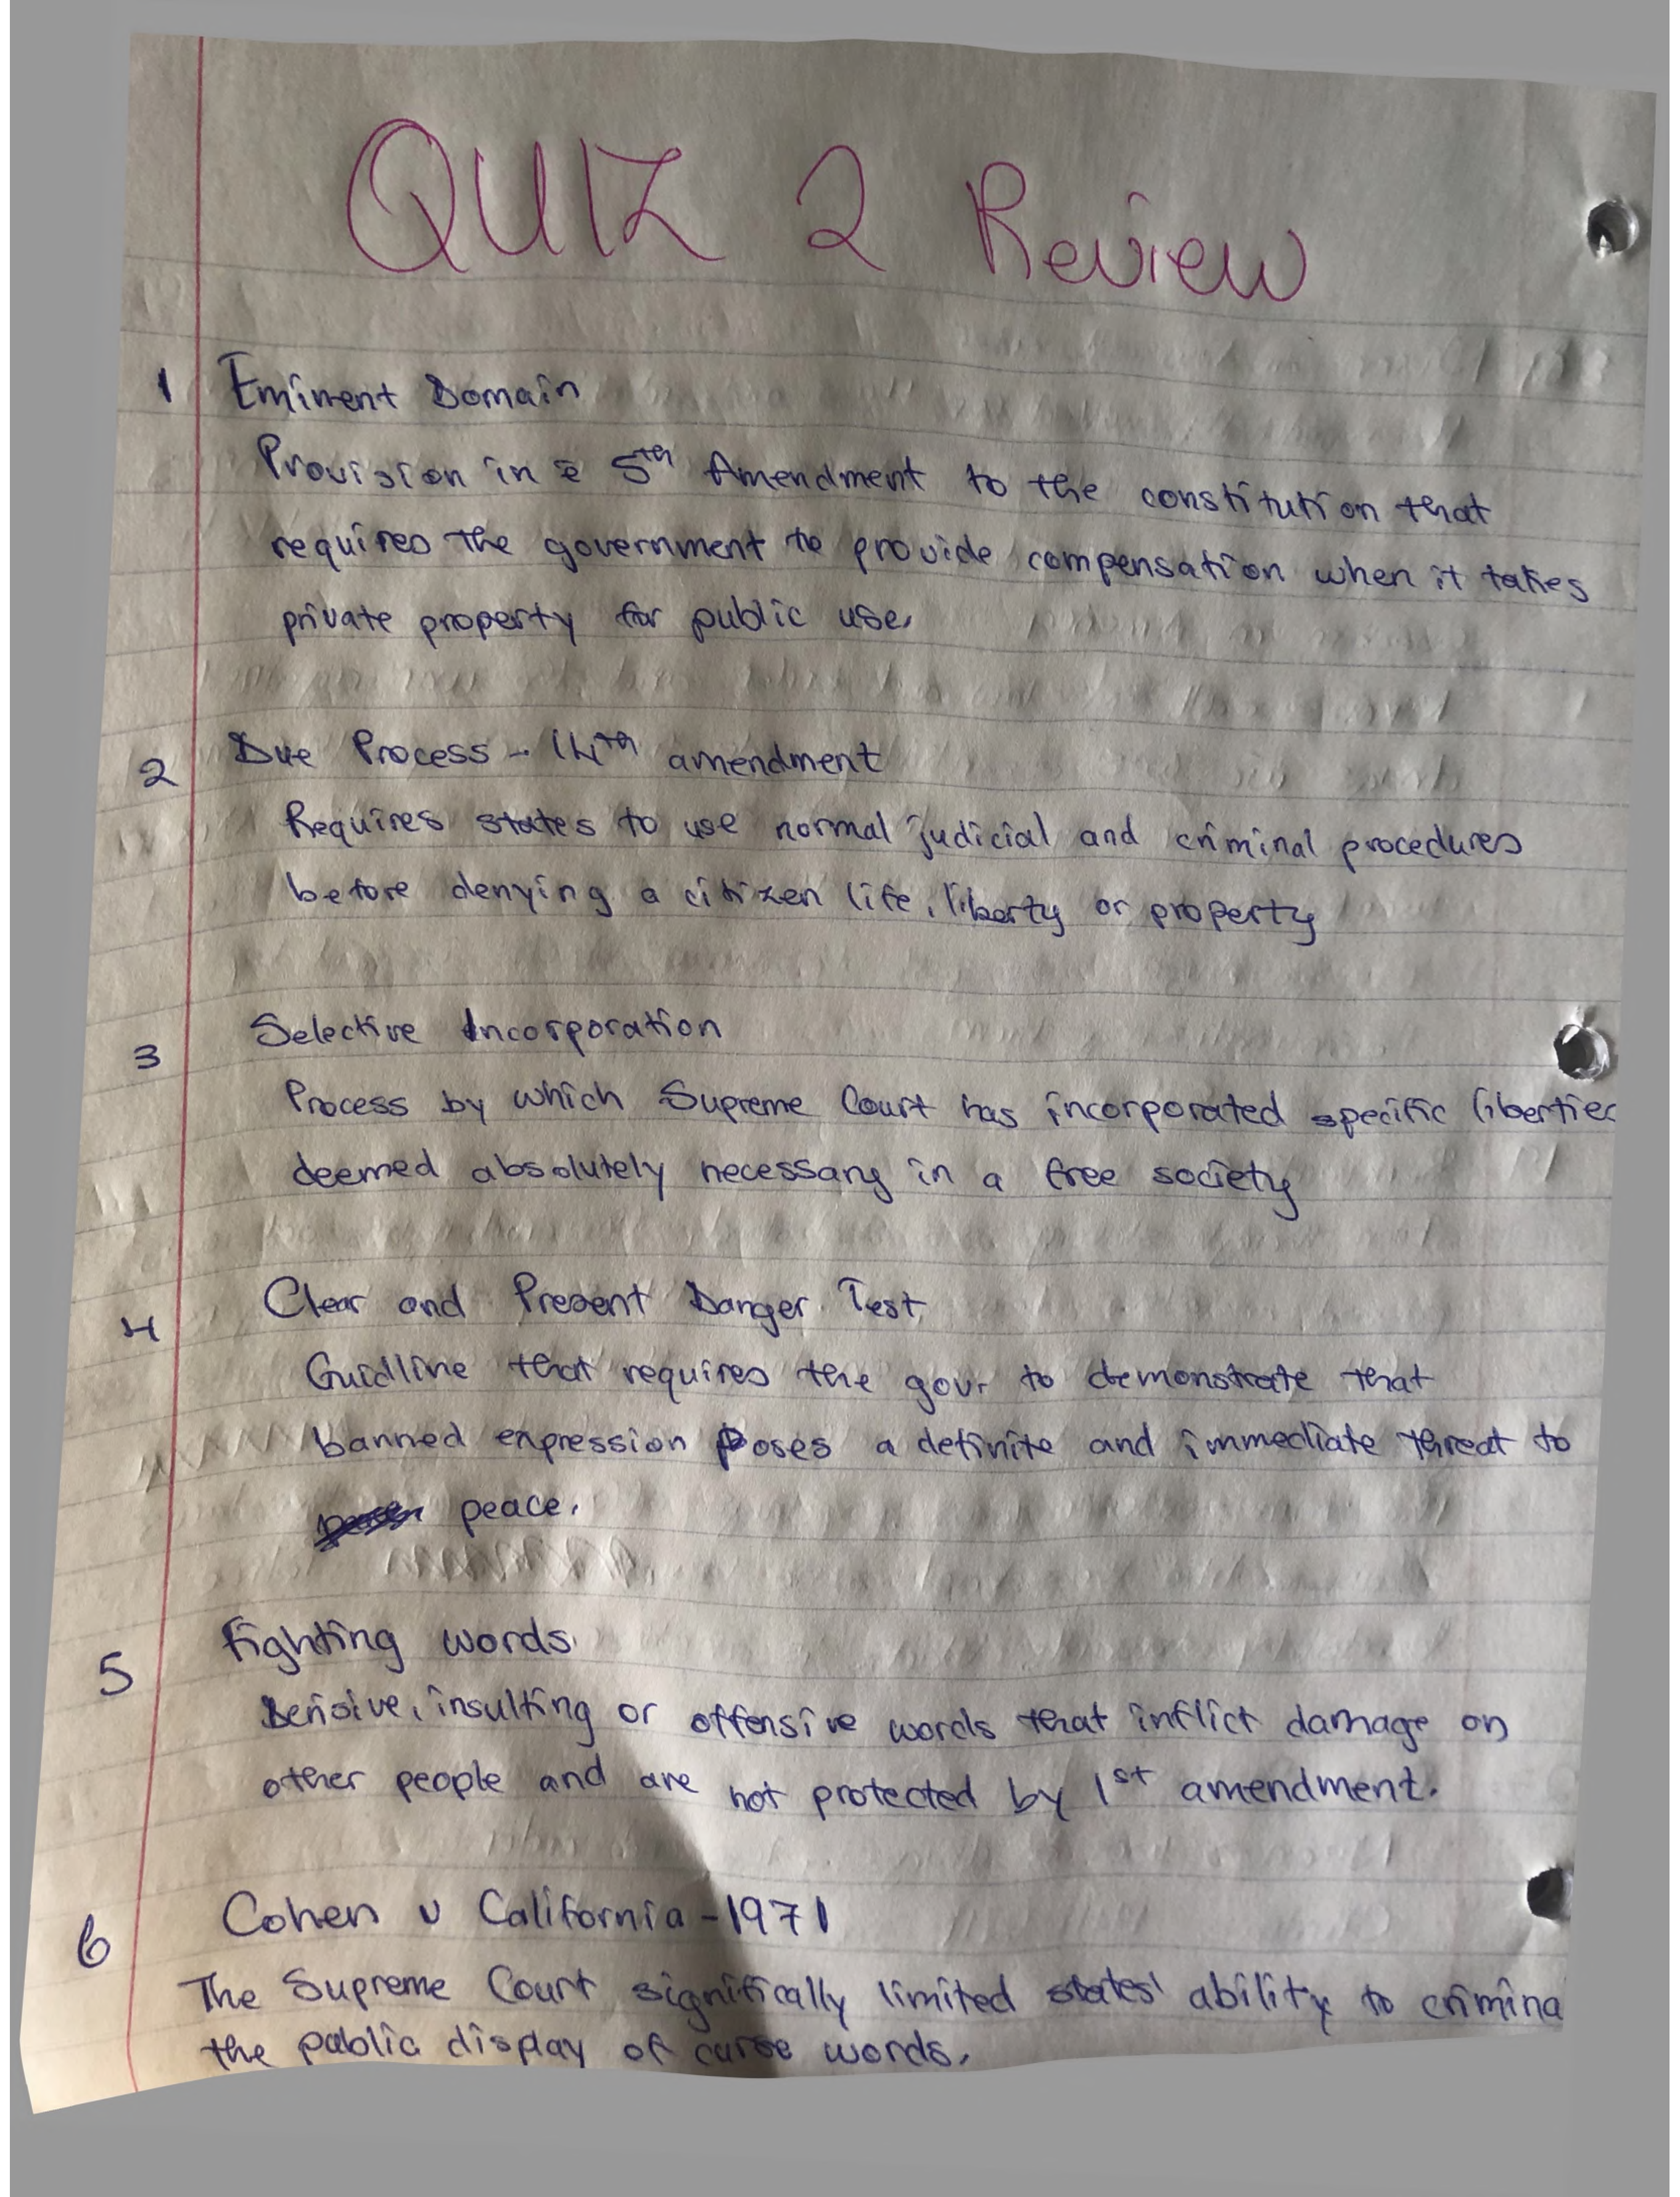 QUIZ 2 Review
1 Eminent Domain
Provision in 5th Amendment to the constitution that
requires the government to provide compensation when it takes
private property for public use.
2 Due Process - 14th amendment
Requires states to use normal judicial and criminal procedures
before denying a citizen life, liberty or property
3 Selective Incorporation
Process by which Supreme Court has incorporated specific liberties
deemed absolutely necessary in a free society
4 Clear and Present Danger Test
Guidline that requires the gov. to demonstrate that
banned expression poses a definite and immediate threat to
peace.
5 fighting words
Derisive, insulting or offensive words that inflict damage on
other people and are not protected by 1st amendment.
6 Cohen v California - 1971
The Supreme Court significally limited states' ability to crimina
the public display of curse words.